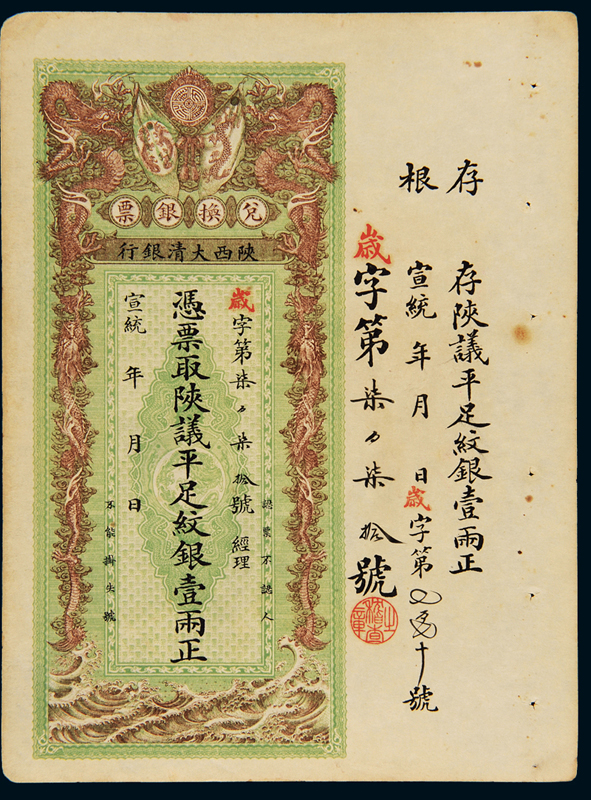 存根
存陝議平足紋銀壹兩正
宣統 年 月 日歲字第 十號
歲字第柒 柒拾號
稽查之章
兌換銀票
陝西大清銀行
認票不認人
歲字第柒 柒拾號 經理
憑票取陝議平足紋銀壹兩正
宣統 年 月 日
不能掛失號